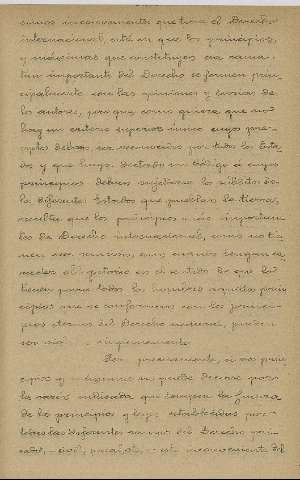 inconveniente que tiene el Derecho
internacional, está en que los principios
y máximas que constituyen esta rama
tan importante del Derecho se formen prin-
cipalmente con las opiniones y teorías de
los autores, porque como quiera que no
hay un criterio superior único cuyos pre-
ceptos deban ser reconocidos por todos los Esta-
dos y que haya dictado un Código á cuyos
principios deban sujetarse los súbditos de
los diferentes Estados que pueblan la tierra,
resulta que los principios más importan-
tes de Derecho internacional, como no tie-
nen esa sanción,
obligatorio en el sentido de que la
tienen para todos los hombres aquellos prin-
cipios que se conforman con los princi-
pios eternos del Derecho natural, pueden
ser impunemente.
prin-
cipios y máximas no puede decirse por
la razón indicada que tengan la fuerza
de los principios y leyes establecidas por
todas las diferentes ramas del Derecho pri-
vado, civil, penal, este inconveniente del